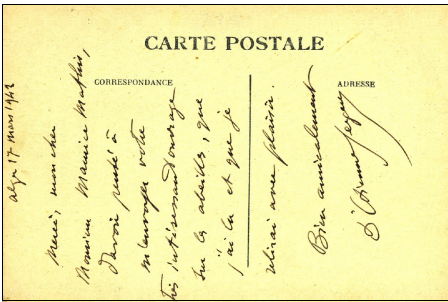 CARTE POSTALE
CORRESPONDANCE
ADRESSE
Alger 17 mars 1942
Merci, mon cher
Monsieur Maurice Mathis,
d'avoir pensé à
m'envoyer votre
très intéressant ouvrage
sur les abeilles, que
j'ai lu et que je
relirai avec plaisir.
Bien amicalement
Dr Etienne Sergent